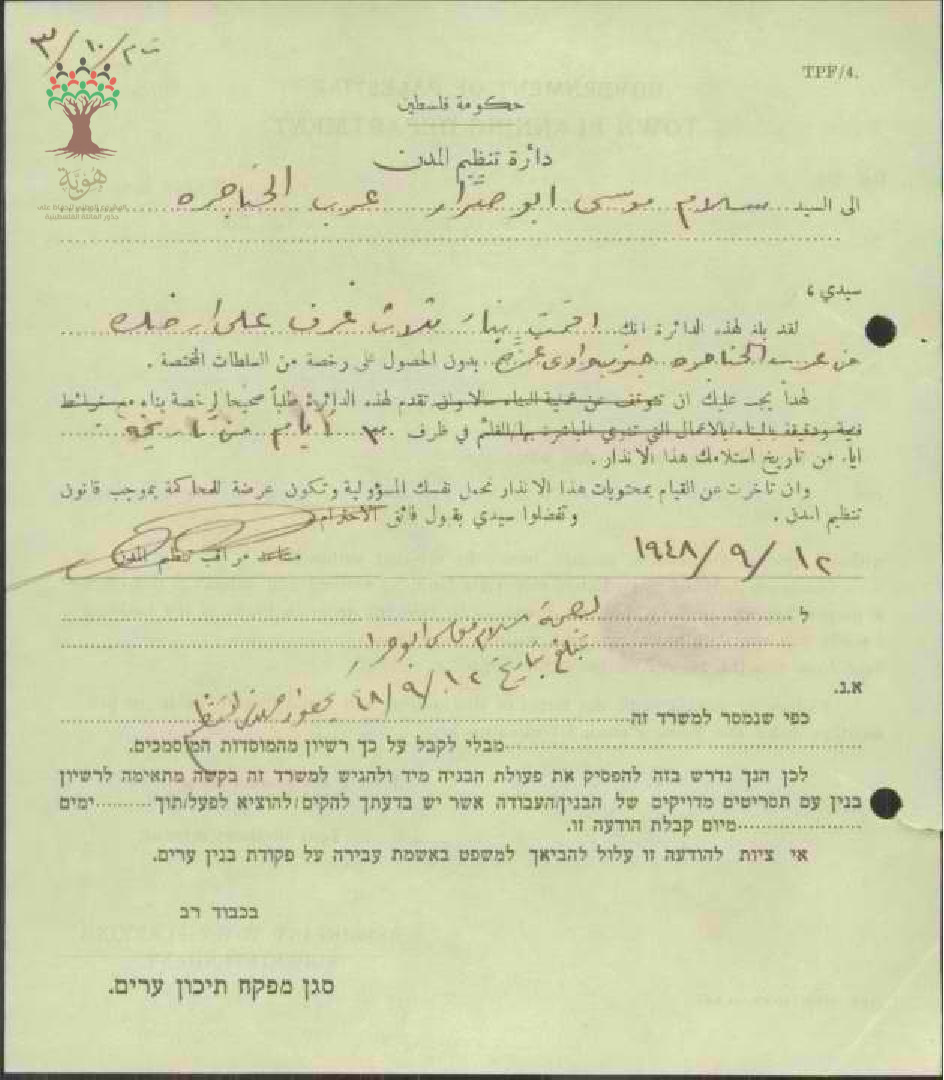 ٣/١٠/
TPF/4.
حكومة فلسطين
دائرة تنظيم المدن
هويّة
الى السيد سلام موسى ابو صرار عرب الحناجره
سيدي ،
لقد بلغ لهذه الدائرة انك اقمت بناء ثلاث غرف على ارضك
من عرب الحناجره جنوب وادي غزه بدون الحصول على رخصة من السلطات المختصة .
لهذا يجب عليك ان تتوقف عن عملية البناء حالا وان تقدم لهذه الدائرة طلباً صحيحا لرخصة بناء مع خرائط
فنية ودقيقة بالبناء/بالاعمال التي تنوي المباشرة بها/القلم في ظرف ٣ ايام من تاريخه
ايام من تاريخ استلامك هذا الانذار .
وان تاخرت عن القيام بمحتويات هذا الانذار تحمل نفسك المسؤولية وتكون عرضة للمحاكمة بموجب قانون
تنظيم المدن . وتفضلوا سيدي بقبول فائق الاحترام
١٩٤٨/٩/١٢ مساعد مراقب تنظيم المدن
ل
بصمة سلام موسى ابو
تبلغ بتاريخ ٤٨/٩/١٢ بحضور
א.נ.
כפי שנמסר למשרד זה
מבלי לקבל על כך רשיון מהמוסדות המוסמכים.
לכן הנך נדרש בזה להפסיק את פעולת הבניה מיד ולהגיש למשרד זה בקשה מתאימה לרשיון
בנין עם תסריטים מדויקים של הבנין/העבודה אשר יש בדעתך להקים/להוציא לפעל/תוך ימים
מיום קבלת הודעה זו.
אי ציות להודעה זו עלול להביאך למשפט באשמת עבירה על פקודת בנין ערים.
בכבוד רב
סגן מפקח תיכון ערים.